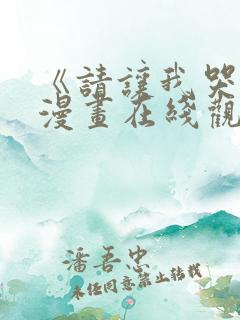 《請讓我哭
漫畫在綫觀
潘吾忠
未经同意禁止转载